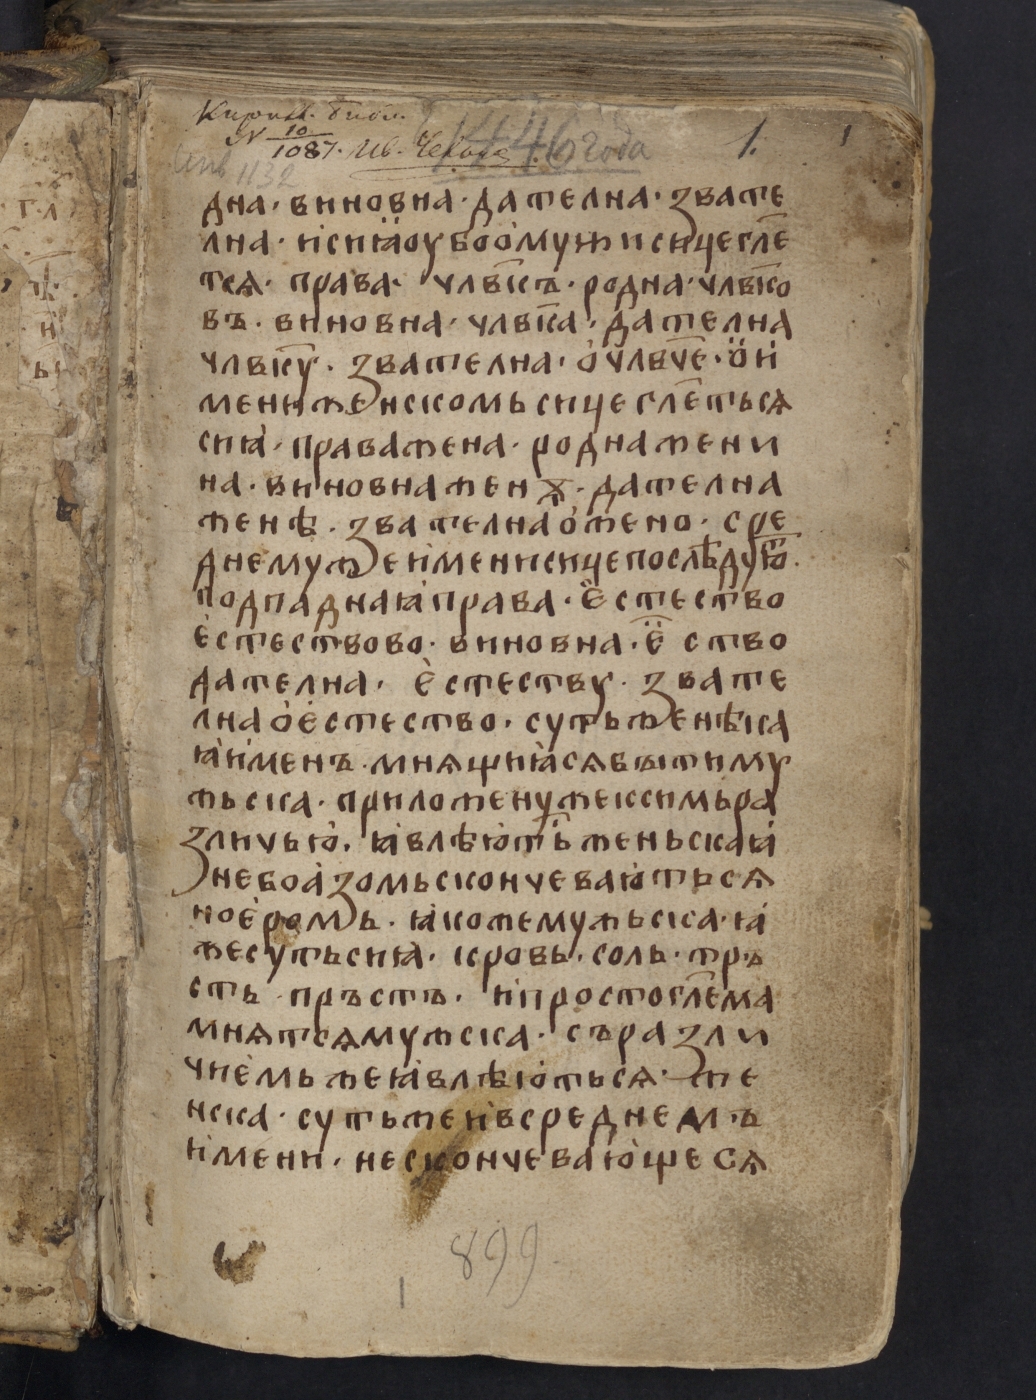 Кирил. библ.
№ 10/1087.
1446 года
1.
1
1132
дна · виновна · дателна · звате
лна · и сиꙗ оубо о мужи сице гл҃е
тсѧ · права · члв҃къ · родна · члв҃ко
въ · виновна · члв҃ка · дателна
члв҃ку · звателна · о члв҃че · о и
мени женскомь сице гл҃еться
сиꙗ · права жена · родна жени
на · виновна женѫ · дателна
женѣ · звателна о жено · сре
днему же имени сице послѣдую҃т ·
подпаднаꙗ права · естество
естествово · виновна · е҃ство
дателна · естеству · звате
лна о естество · суть же нѣка
ꙗ именъ мнѧщиꙗсѧ быти му
жьска · приложену же к симь ра
зличью · ꙗвлѣють женьскаꙗ
не бо азомь скончеваютьсѧ
но еромь · ꙗко же мужьска · ꙗ
же суть сиꙗ · кровь · соль · тръ
сть · пръсть · и просто гл҃ема
мнѧтсѧ мужска · съ разли
чиемь же ꙗвлѣютьсѧ · же
нска · суть же и в среднемъ
имени · не скончевающесѧ
899